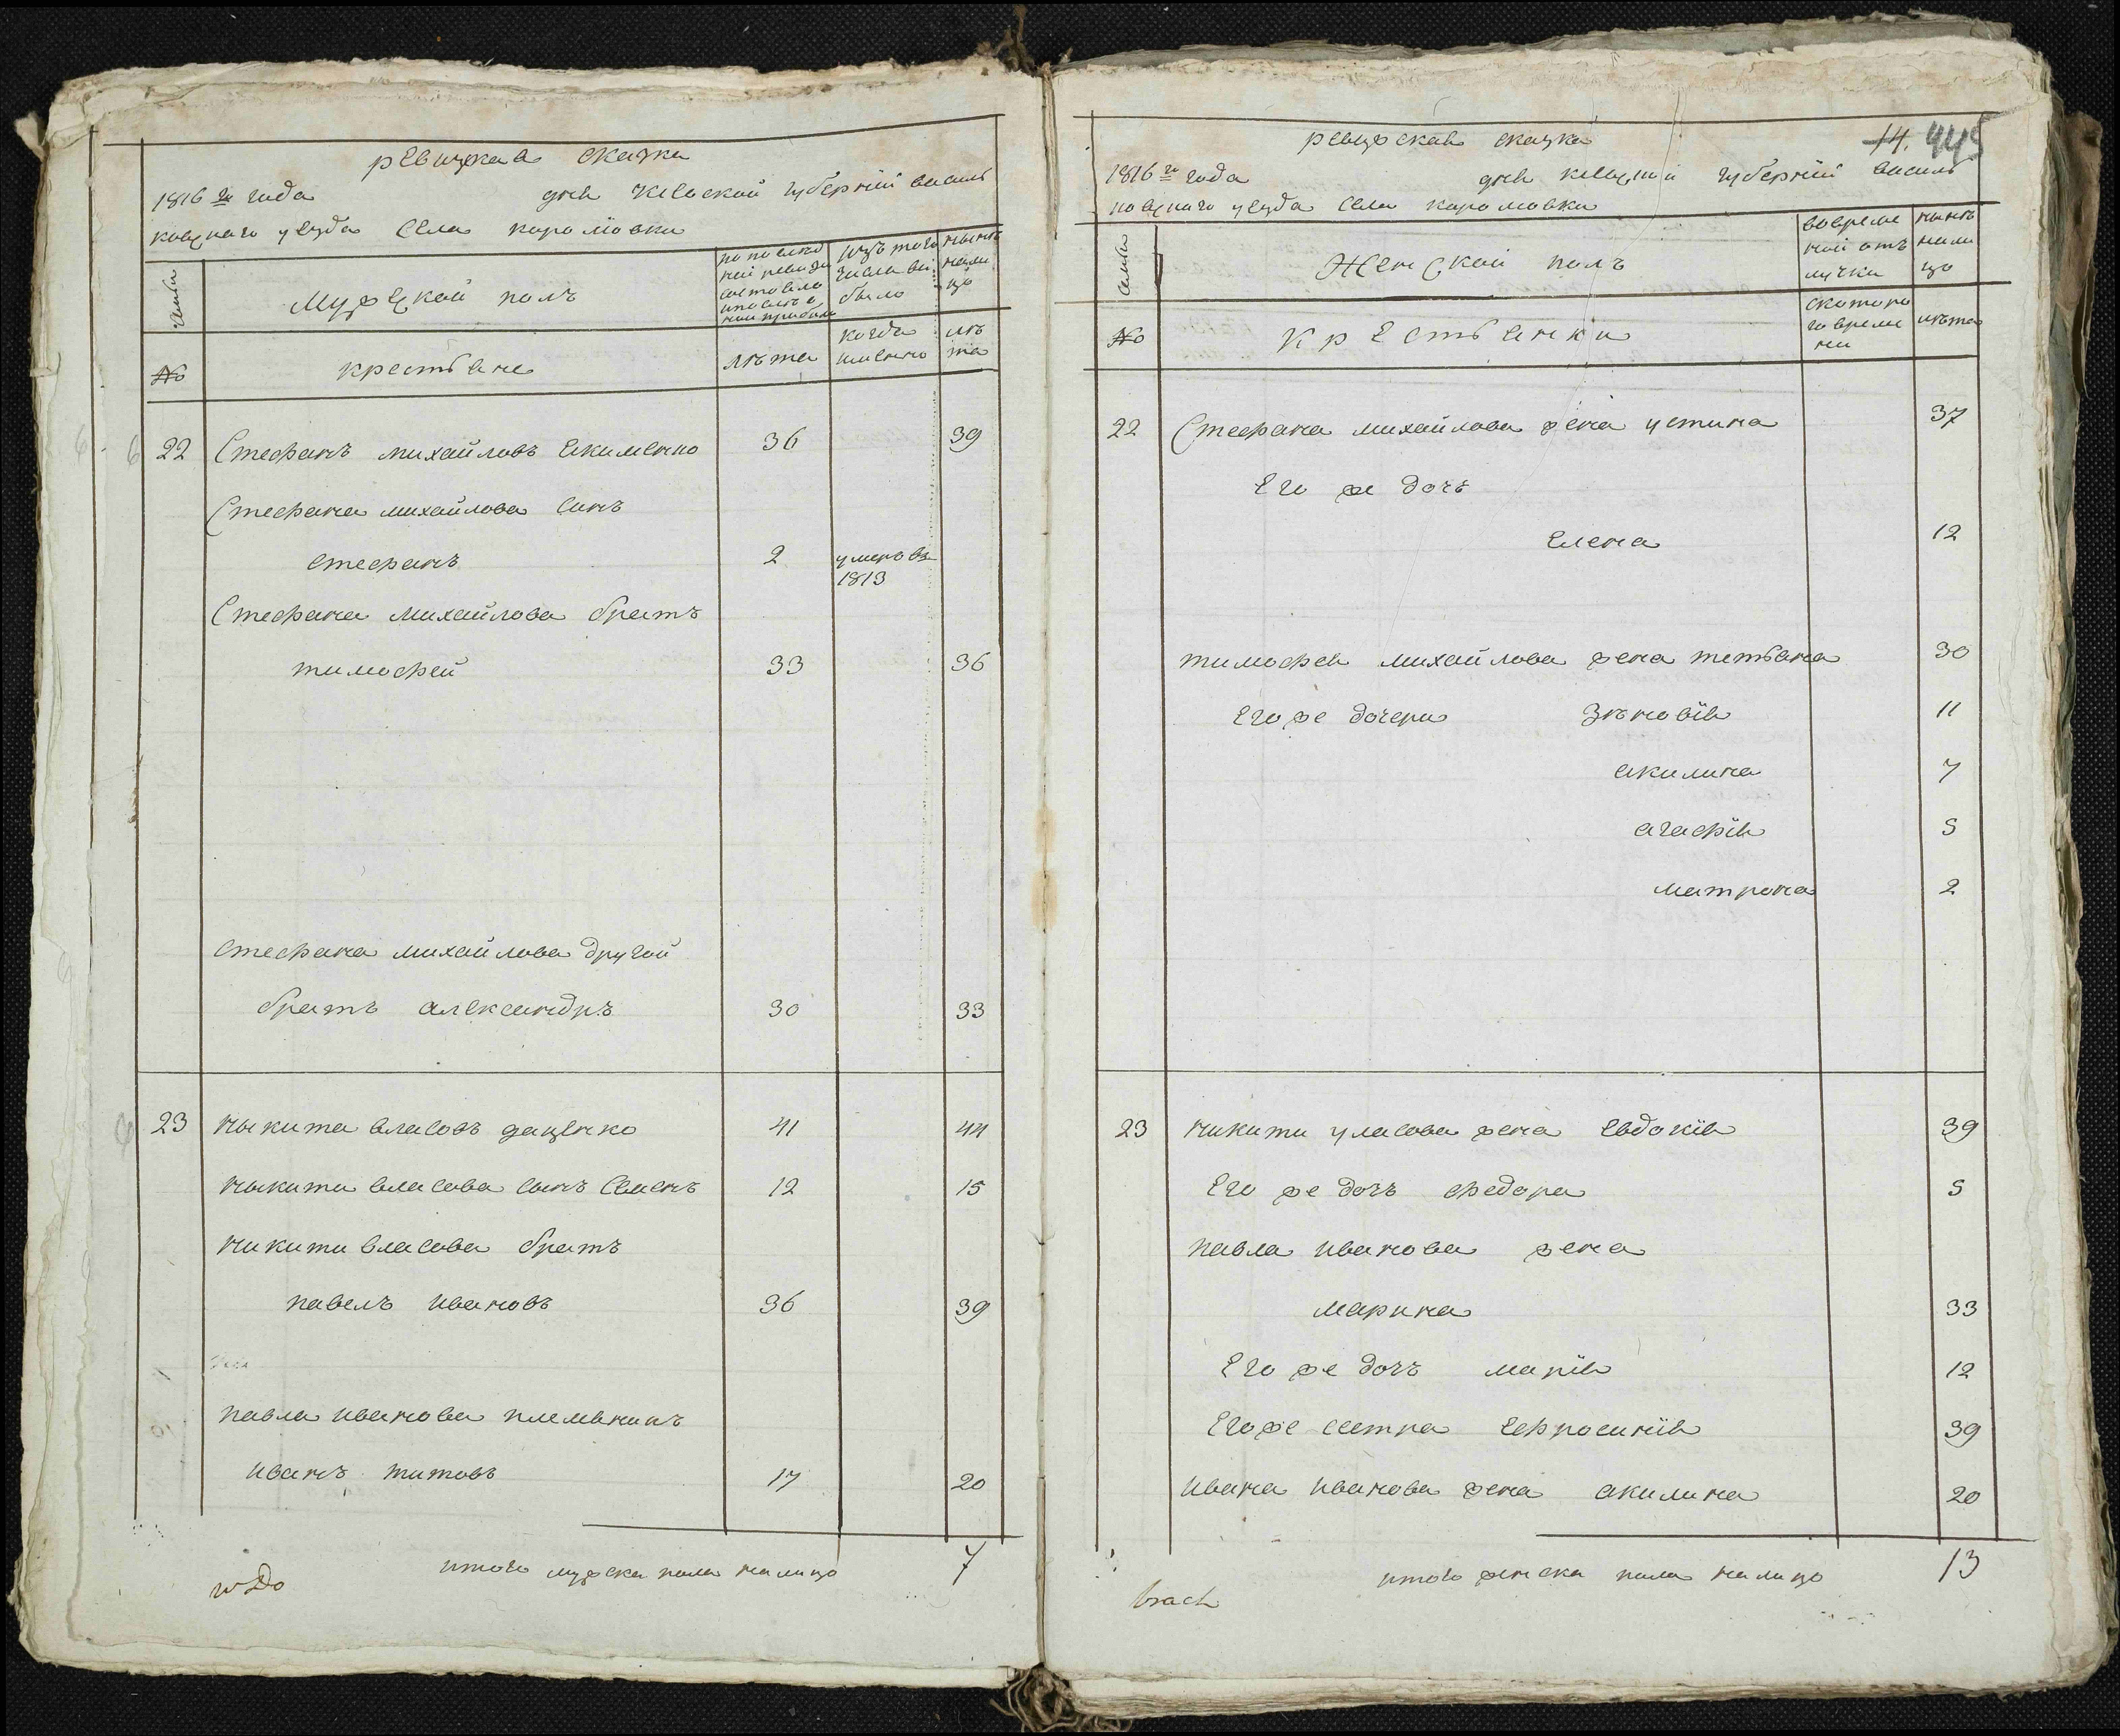 ревижкая скаска
1816 го года дня Киевской губернїй василь
ковскаго уезда села королювки
Семьи
Мужеской полъ
по послед
ней ревизи
состояло
и после о
ной прибыло
изъ того
числа вы
было
ныне
нали
цо
№
крестьяне
лѣта
когда
именно
лѣ
та
22 Стефанъ михайловъ Якименко 36 39
Стефана михайлова синъ
стефанъ 2 умеръ въ
1813
Стефана михайлова братъ
тимофей 33 36
стефана михайлова другой
братъ александръ 30 33
23 Ныкита власовъ даценко 41 44
Ныкити власова сынъ Семенъ 12 15
Никити власова братъ
павелъ ивановъ 36 39
павла иванова племяникъ
иванъ титовъ 17 20
итого мужска пола налицо 7
14. 445
ревижская скаска
1816 го года дня Киевской губернїй василь
ковскаго уезда села королювки
Семьи
Женской полъ
во време
ной отъ
лучки
ныне
нали
цо
№
Крестьянки
скоторо
го време
ни
лѣта
22 Стефана михайлова жена устина 37
Его же дочъ
Елена 12
тимофея михайлова жена татьяна 30
Его же дочери Зѣновїя 11
акилина 7
агафїя 5
матрона 2
23 никити уласова жена Евдокїя 39
Его же дочъ федора 5
павла иванова жена
марина 33
Его же дочъ марїя 12
Его же сестра Ефросинїя 39
ивана иванова жена акилина 20
итого женска пола налицо 13